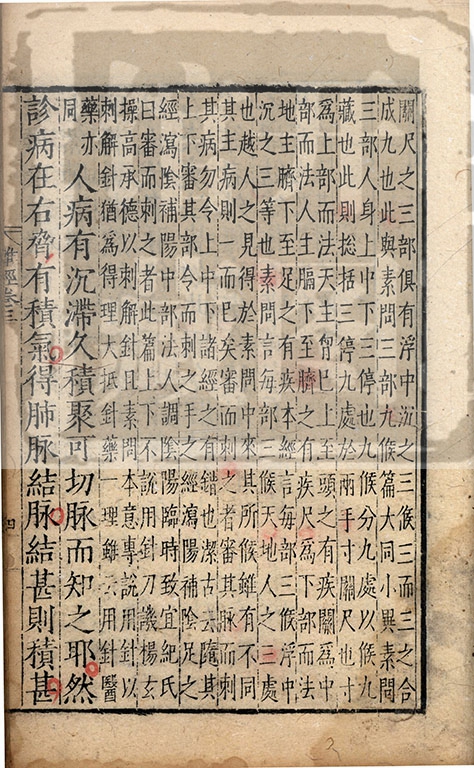 關尺之三部俱有浮中沉之三候三而三之合
成九也此與素問三部九候篇大同小異素問
三部人身上中下三停也九候分九處以候九
藏也此則捴括三停九處於兩手寸關尺也寸
爲上部而法天主胷已上至頭之有疾關爲中
部而法人主膈下至臍之有疾尺爲下部而法
地主臍下至足之有疾本經言每部三候浮中
沉之三等也素問言每部三候天地人之三處
也越人之見得於素問中來其所候雖有不同
其主病則一而已矣審而刺之者審其脉而刺
其病勿令上中下諸經之有錯也潔古云隨其
上下審其部令而刺之手之經瀉陽補陰足之
經瀉陰補陽中部法人調陰陽臨時致宜紀氏
曰審而刺之者此篇上下不說用針刀議楊玄
操高承德以刺解針且素問本意專說用針以
刺解針猶爲得理大抵針藥一理雖云用針醫
藥亦
同
人病有沉滯久積聚可切脉而知之耶然
診病在右脅有積氣得肺脉結脉結甚則積甚
難經卷三
四